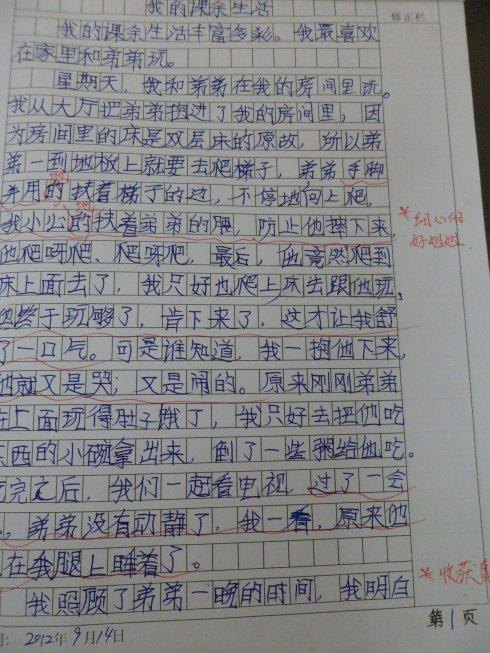 我的课余生活
修正栏
我的课余生活丰富多彩。我最喜欢
在家里和弟弟玩。
星期天，我和弟弟在我的房间里玩。
我从大厅把弟弟抱进了我的房间里，因
为房间里的床是双层床的原故，所以弟
弟一到地板上就要去爬梯子，弟弟手脚
并用的扶着梯子的边，不停地向上爬，
我小心的扶着弟弟的腰，防止他摔下来，
细心的
好姐姐
他爬呀爬、爬呀爬，最后，他竟然爬到
床上面去了，我只好也爬上床去跟他玩，
他终于玩够了，肯下来了，这才让我舒
了一口气。可是谁知道，我一抱他下来，
他就又是哭；又是闹的。原来刚刚弟弟
在上面玩得肚子饿了，我只好去把他吃
东西的小碗拿出来，倒了一些粥给他吃。
吃完之后，我们一起看电视，过了一会
，弟弟没有动静了，我一看，原来他
在我腿上睡着了。
收获真
我照顾了弟弟一晚的时间，我明白
第1页
期：2012年9月14日